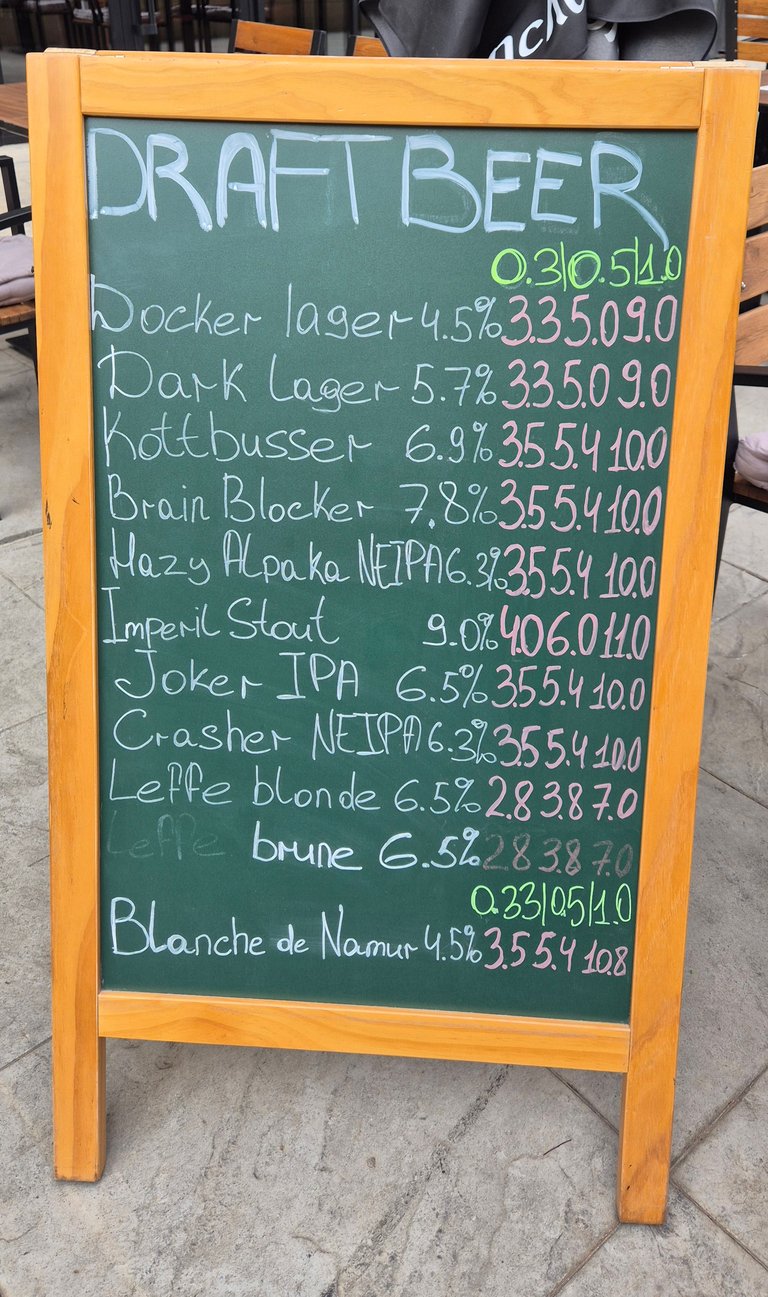 DRAFT BEER
0.3|0.5|1.0
Docker lager 4.5% 3.3 5.0 9.0
Dark Lager 5.7% 3.3 5.0 9.0
Kottbusser 6.9% 3.5 5.4 10.0
Brain Blocker 7.8% 3.5 5.4 10.0
Hazy Alpaka NEIPA 6.3% 3.5 5.4 10.0
Imperil Stout 9.0% 4.0 6.0 11.0
Joker IPA 6.5% 3.5 5.4 10.0
Crasher NEIPA 6.3% 3.5 5.4 10.0
Leffe blonde 6.5% 2.8 3.8 7.0
Leffe brune 6.5% 2.8 3.8 7.0
0.33|0.5|1.0
Blanche de Namur 4.5% 3.5 5.4 10.8